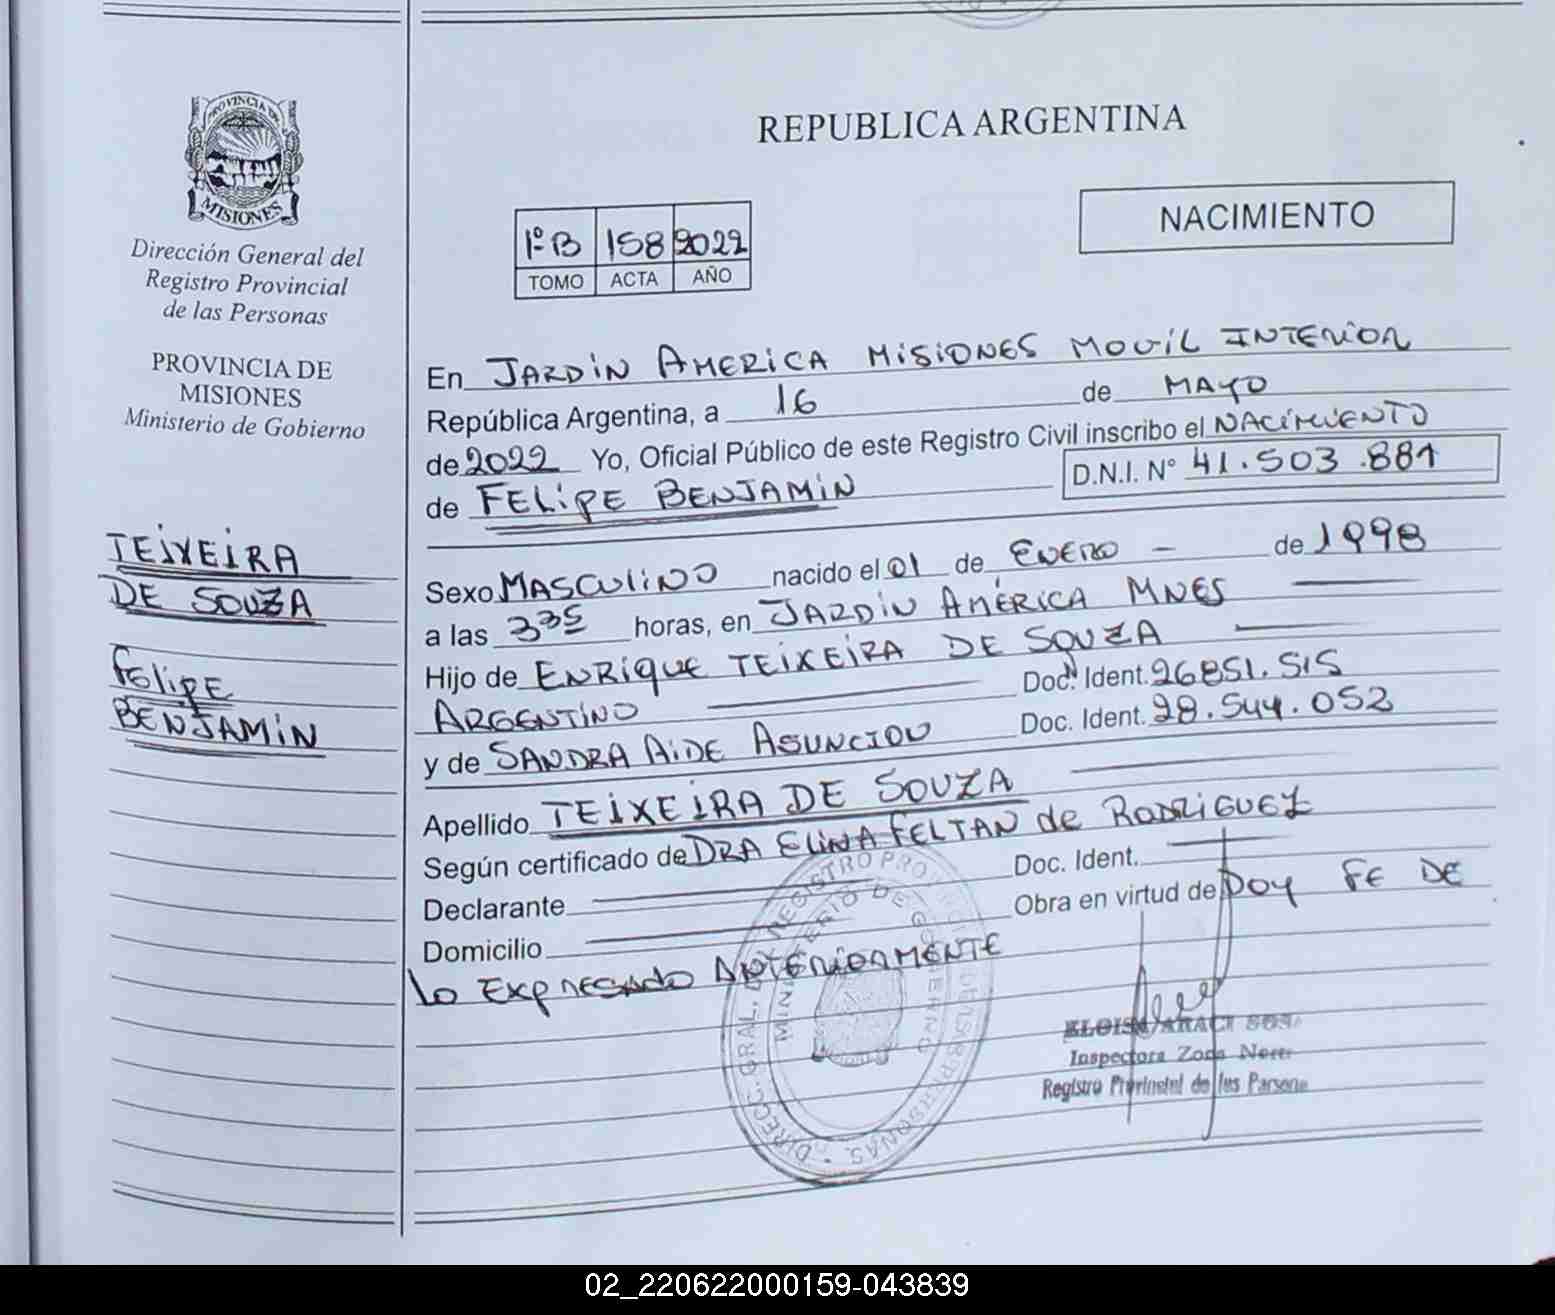 PROVINCIA DE
MISIONES
Dirección General del
Registro Provincial
de las Personas
PROVINCIA DE
MISIONES
Ministerio de Gobierno
TEIXEIRA
DE SOUZA
FELIPE
BENJAMIN
REPUBLICA ARGENTINA
NACIMIENTO
1º B 158 2022
TOMO ACTA AÑO
En JARDIN AMERICA MISIONES MOVIL INTERIOR
República Argentina, a 16 de MAYO
de 2022 Yo, Oficial Público de este Registro Civil inscribo el NACIMIENTO
de FELIPE BENJAMIN D.N.I. N° 41.503.881
Sexo MASCULINO nacido el 01 de ENERO - de 1998
a las 3 35 horas, en JARDIN AMÉRICA MNES
Hijo de ENRIQUE TEIXEIRA DE SOUZA
ARGENTINO Doc. Ident. 26851.515
y de SANDRA AIDE ASUNCION Doc. Ident. 28.544.052
Apellido TEIXEIRA DE SOUZA
Según certificado de DRA ELINA FELTAN de RODRIGUEZ
Declarante Doc. Ident.
Domicilio Obra en virtud de DOY FE DE
lo EXPRESADO ANTERIORMENTE
DIRECC. GRAL. DEL REGISTRO PROVINCIAL DE LAS PERSONAS
MINISTERIO DE GOBIERNO
ELOISA ARACI SOSA
Inspectora Zona Norte
Registro Provincial de las Persona
02_220622000159-043839